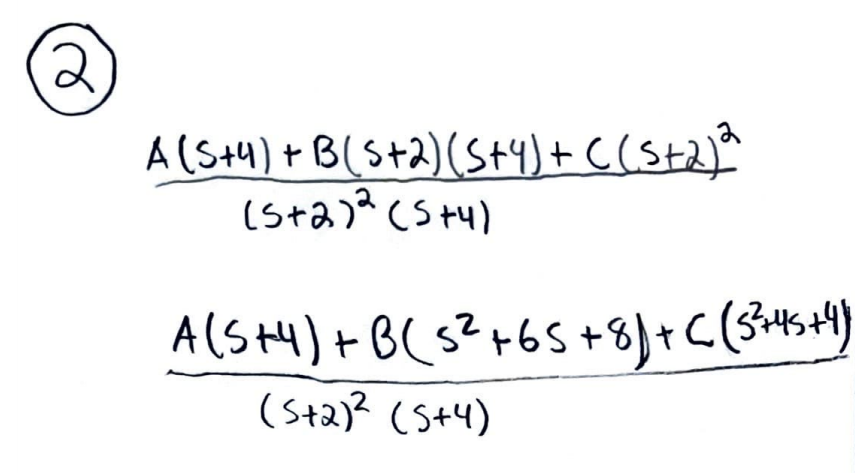 2
A(S+4) + B(S+2)(S+4) + C(S+2)²
(S+2)² (S+4)
A(S+4) + B(S² + 6S + 8) + C(S²+4S+4)
(S+2)² (S+4)